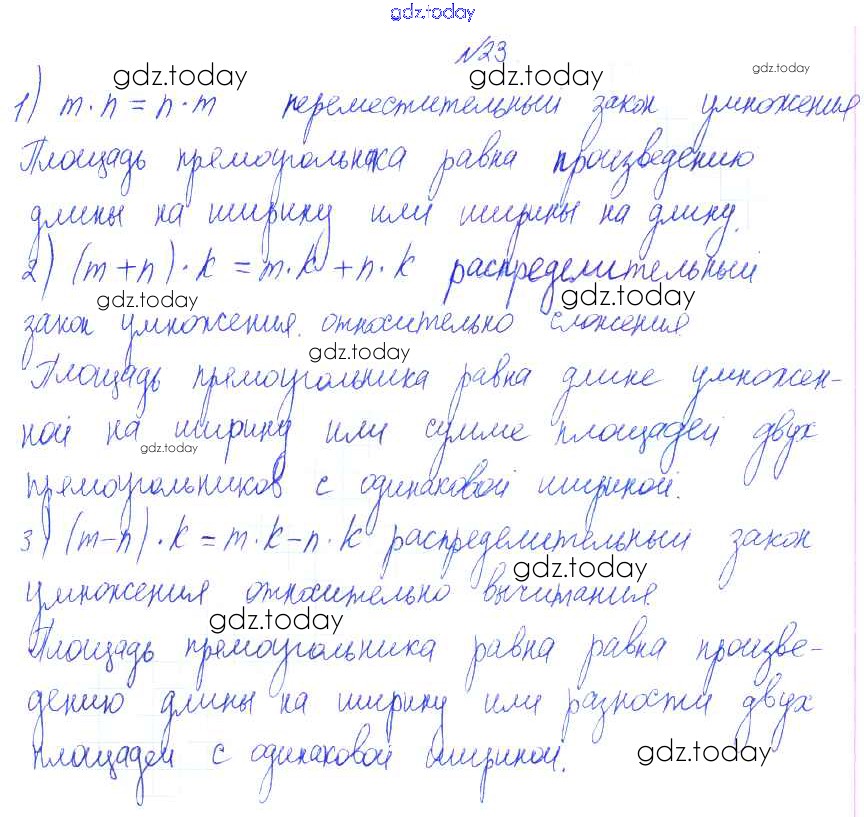 gdz.today
№23
gdz.today gdz.today gdz.today
1) m·n = n·m переместительный закон умножения
Площадь прямоугольника равна произведению
длины на ширину или ширины на длину.
2) (m+n)·k = m·k+n·k распределительный
gdz.today gdz.today
закон умножения относительно сложения.
gdz.today
Площадь прямоугольника равна длине умножен-
ной на ширину или сумме площадей двух
gdz.today
прямоугольников с одинаковой шириной.
3) (m-n)·k = m·k-n·k распределительный закон
gdz.today
умножения относительно вычитания.
gdz.today
Площадь прямоугольника равна равна произве-
дению длины на ширину или разности двух
площадей с одинаковой шириной.
gdz.today